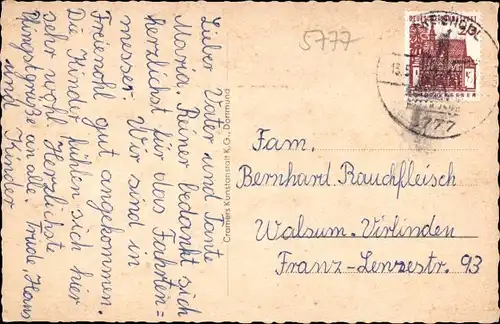 Lieber Vater und Tante
Maria. Reiner bedankt sich
herzlichst für das Fahrten=
messer. Wir sind in
Freienohl gut angekommen.
Die Kinder fühlen sich hier
sehr wohl. Herzlichste
Pfingstgrüße an alle. Trude, Hans
und Kinder
Cramers Kunstanstalt K.G., Dortmund
5777
DEUTSCHE BUNDESPOST
777
Fam.
Bernhard Rauchfleisch
Walsum-Vierlinden
Franz-Lenzestr. 93